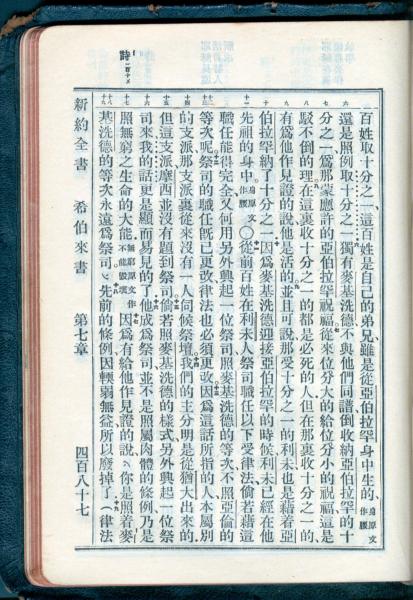 百姓取十分之一、這百姓是自己的弟兄、雖是從亞伯拉罕身中生的、身原文作腰
還是照例取十分之一、獨有麥基洗德不與他們同譜、倒收納亞伯拉罕的十
分之一、爲那蒙應許的亞伯拉罕祝福、從來位分大的給位分小的祝福、這是
駁不倒的理、在這裏收十分之一的都是必死的人、但在那裏收十分之一的、
有爲他作見證的說、他是活的、並且可說那受十分之一的利未、也是藉着亞
伯拉罕納了十分之一、因爲麥基洗德迎接亞伯拉罕的時候、利未已經在他
先祖的身中、身原文作腰〇從前百姓在利未人祭司職任以下受律法、倘若藉這
職任能得完全、又何用另外興起一位祭司、照麥基洗德的等次、不照亞倫的
等次呢、祭司的職任旣已更改、律法也必須更改、因爲這話所指的人、本屬別
的支派、那支派裏從來沒有一人伺候祭壇、我們的主分明是從猶大出來的、
但這支派、摩西並沒有題到祭司、倘若照麥基洗德的樣式、另外興起一位祭
司來、我的話更是顯而易見的了、他成爲祭司、並不是照屬肉體的條例、乃是
照無窮之生命的大能、無窮原文作不能毀壞因爲有給他作見證的說、你是照着麥
基洗德的等次永遠爲祭司、先前的條例、因輭弱無益、所以廢掉了、(律法
六
七
八
九
十
十一
十二
十三
十四
十五
十六
十七
十八
詩一百十4
新約全書 希伯來書 第七章 四百八十七